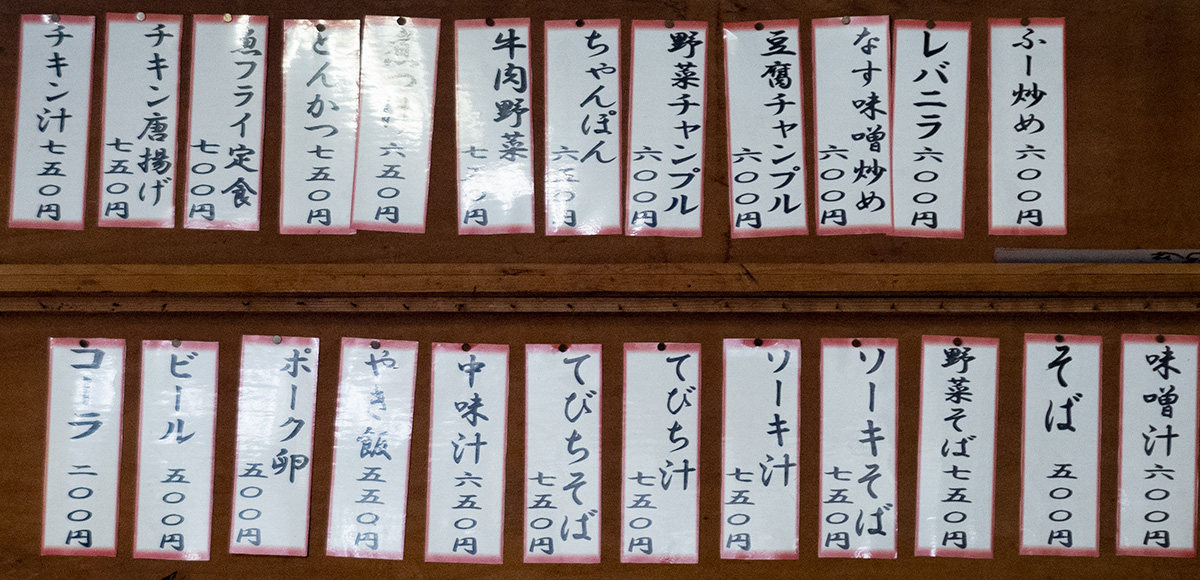 ふー炒め 六〇〇円
レバニラ 六〇〇円
なす味噌炒め
六〇〇円
豆腐チャンプル
六〇〇円
野菜チャンプル
六〇〇円
ちゃんぽん
六五〇円
牛肉野菜
七五〇円
六五〇円
とんかつ七五〇円
魚フライ定食
七〇〇円
チキン唐揚げ
七五〇円
チキン汁七五〇円
味噌汁六〇〇円
そば 五〇〇円
野菜そば七五〇円
ソーキそば
七五〇円
ソーキ汁
七五〇円
てびち汁
七五〇円
てびちそば
七五〇円
中味汁六五〇円
やき飯五五〇円
ポーク卵
五〇〇円
ビール 五〇〇円
コーラ 二〇〇円